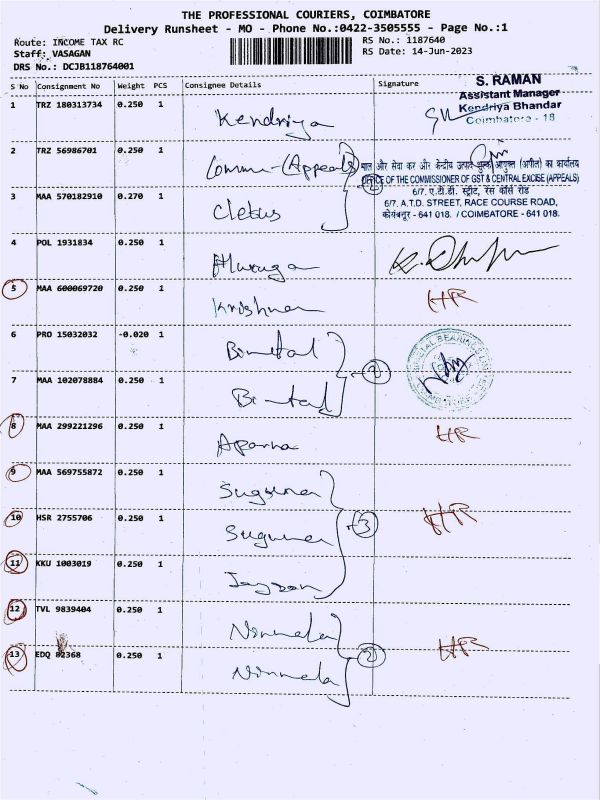 THE PROFESSIONAL COURIERS, COIMBATORE
Delivery Runsheet - MO - Phone No.:0422-3505555 - Page No.:1
Route: INCOME TAX RC
RS No.: 1187640
Staff: VASAGAN
RS Date: 14-Jun-2023
DRS No.: DCJB118764001
S No Consignment No Weight PCS Consignee Details Signature
S. RAMAN
Assistant Manager
Kendriya Bhandar
Coimbatore - 18
1 TRZ 180313734 0.250 1 Kendriya
2 TRZ 56986701 0.250 1 Commr-(Appeals)
माल और सेवा कर और केंद्रीय उत्पाद शुल्क आयुक्त (अपील) का कार्यालय
OFFICE OF THE COMMISSIONER OF GST & CENTRAL EXCISE (APPEALS)
6/7, ए.टी.डी. स्ट्रीट, रेस कोर्स रोड
6/7, A.T.D. STREET, RACE COURSE ROAD,
कोयंबत्तूर - 641 018. / COIMBATORE - 641 018.
3 MAA 570182910 0.270 1 Cletus
4 POL 1931834 0.250 1 Muruga
5 MAA 600069720 0.250 1 Krishnan HR
6 PRO 15032032 -0.020 1 Bimetal
7 MAA 102078884 0.250 1 Bimetal 2
8 MAA 299221296 0.250 1 Aparna HR
9 MAA 569755872 0.250 1 Suguna
10 HSR 2755706 0.250 1 Suguna 3 HR
11 KKU 1003019 0.250 1 Jayson
12 TVL 9839404 0.250 1 Nirmala
13 EDQ 82368 0.250 1 Nirmala 2 HR